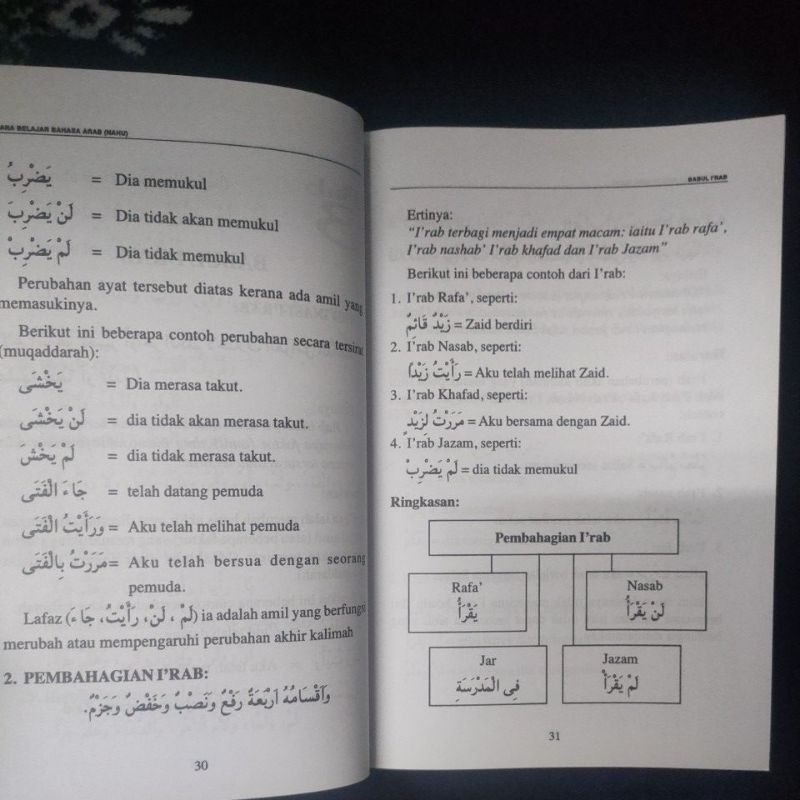 ARA BELAJAR BAHASA ARAB (NAHU)
يَضْرِبُ = Dia memukul
لَنْ يَضْرِبَ = Dia tidak akan memukul
لَمْ يَضْرِبْ = Dia tidak memukul
Perubahan ayat tersebut diatas kerana ada amil yang
memasukinya.
Berikut ini beberapa contoh perubahan secara tersirat
(muqaddarah):
يَخْشَى = Dia merasa takut.
لَنْ يَخْشَى = dia tidak akan merasa takut.
لَمْ يَخْشَ = dia tidak merasa takut.
جَاءَ الْفَتَى = telah datang pemuda
وَرَأَيْتُ الْفَتَى = Aku telah melihat pemuda
مَرَرْتُ بِالْفَتَى = Aku telah bersua dengan seorang
pemuda.
Lafaz (لَمْ ، لَنْ، رَأَيْتُ، جَاءَ) ia adalah amil yang berfungsi
merubah atau mempengaruhi perubahan akhir kalimah
2. PEMBAHAGIAN I'RAB:
وَاَقْسَامُهُ اَرْبَعَةٌ رَفْعٌ وَنَصْبٌ وَخَفْضٌ وَجَزْمٌ.
30
BABUL I'RAB
Ertinya:
"I'rab terbagi menjadi empat macam: iaitu I'rab rafa',
I'rab nashab' I'rab khafad dan I'rab Jazam"
Berikut ini beberapa contoh dari I'rab:
1. I'rab Rafa', seperti:
زَيْدٌ قَائِمٌ = Zaid berdiri
2. I'rab Nasab, seperti:
رَأَيْتُ زَيْدًا = Aku telah melihat Zaid.
3. I'rab Khafad, seperti:
مَرَرْتُ لِزَيْدٍ = Aku bersama dengan Zaid.
4. I'rab Jazam, seperti:
لَمْ يَضْرِبْ = dia tidak memukul
Ringkasan:
Pembahagian I'rab
Rafa'
يَقْرَأُ
Nasab
لَنْ يَقْرَأَ
Jar
فِى الْمَدْرَسَةِ
Jazam
لَمْ يَقْرَأْ
31